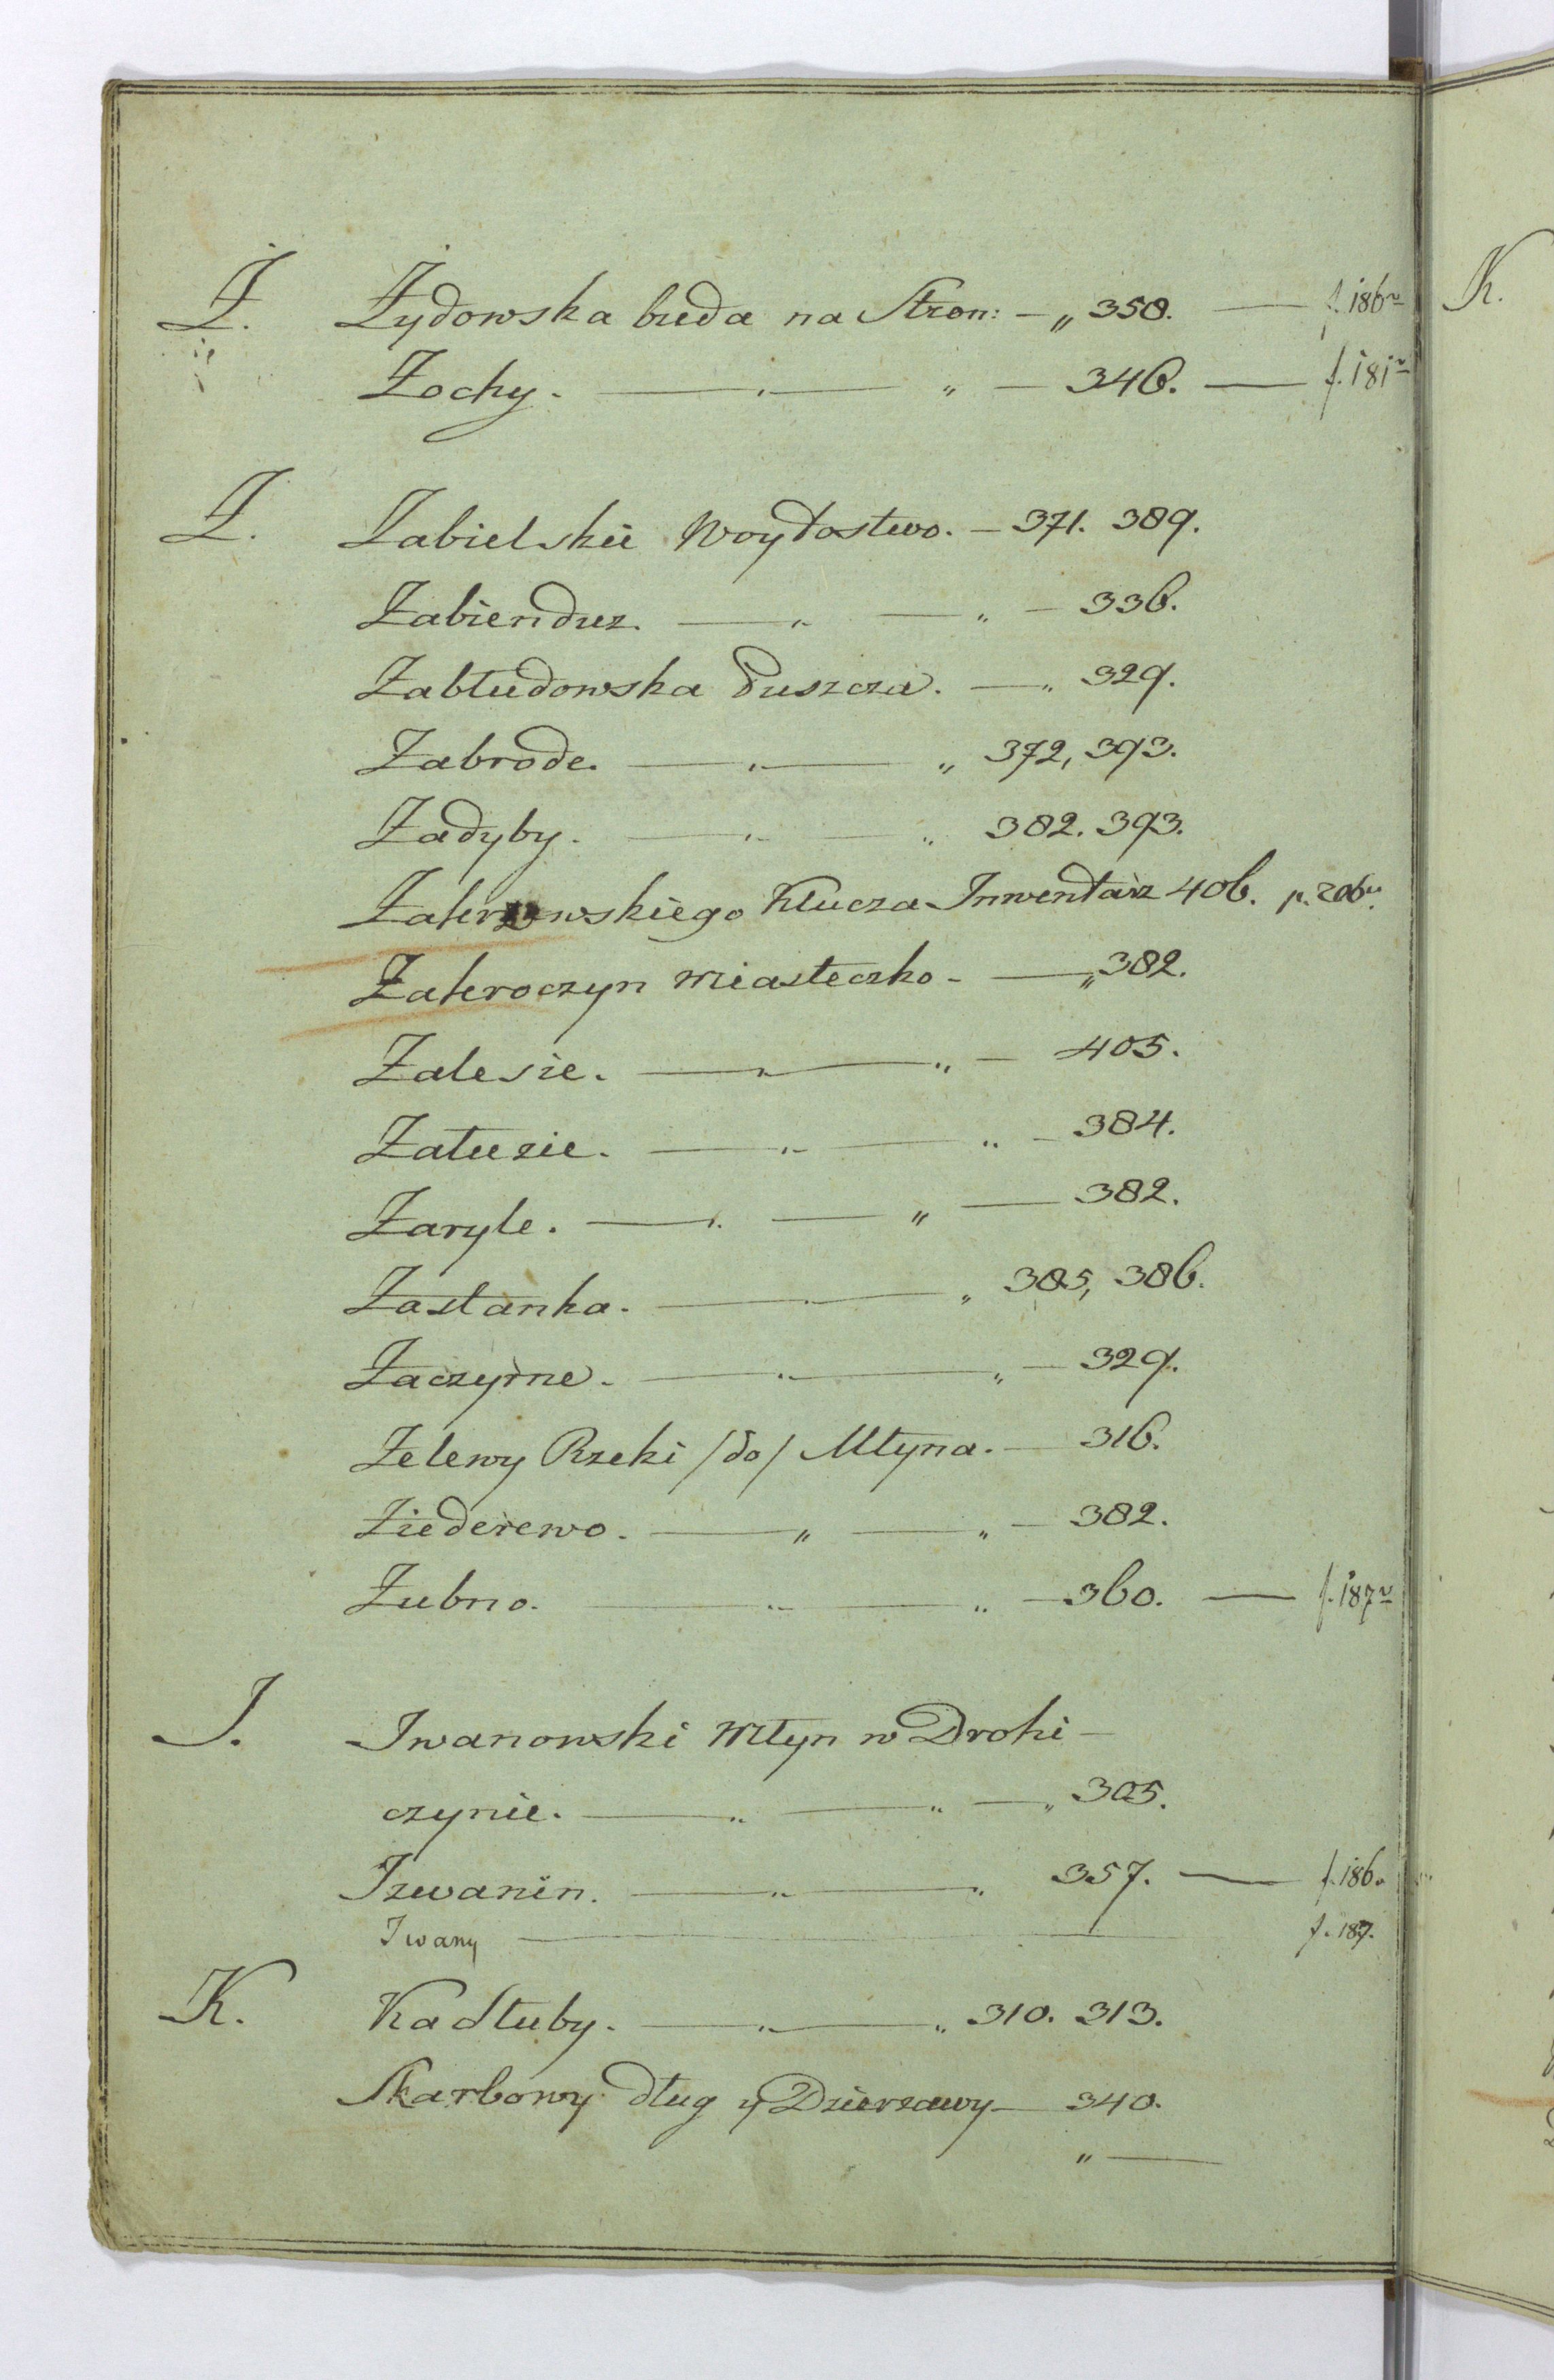 Ż. Żydowska buda na Stron: — „ 358. — f. 186v
Zochy. — „ — „ — 346. — f. 181v
Z. Zabielskie Woytostwo. — 371. 389.
Zabienduz. — „ — „ — 336.
Zabłudowska Puszcza. — „ 329.
Zabrode. — „ — „ 372, 393.
Zadyby. — „ — „ 382. 393.
Klucza Inwentarz 406. p. 206v.
Zakroczyn Miasteczko — — „ 382.
Zalesie. — „ — „ — 405.
Załuzie. — „ — „ — 384.
Zaryle. — „ — „ — 382.
Zastanka. — „ — „ 385, 386.
Zaczyrne. — „ — „ — 329.
Zelewy Rzeki /do/ Młyna. — 316.
Ziederewo. — „ — „ — 382.
Zubno. — „ — „ — 360. — f. 187v
I. Iwanowski Młyn w Drohi-
czynie. — „ — „ — „ 305.
Izwanin. — „ — „ 357. — f. 186.
Iwany — f. 187.
K. Kadłuby. — „ — „ 310. 313.
Skarbowy dług y Dzierzawy — 340.
„ —
K.